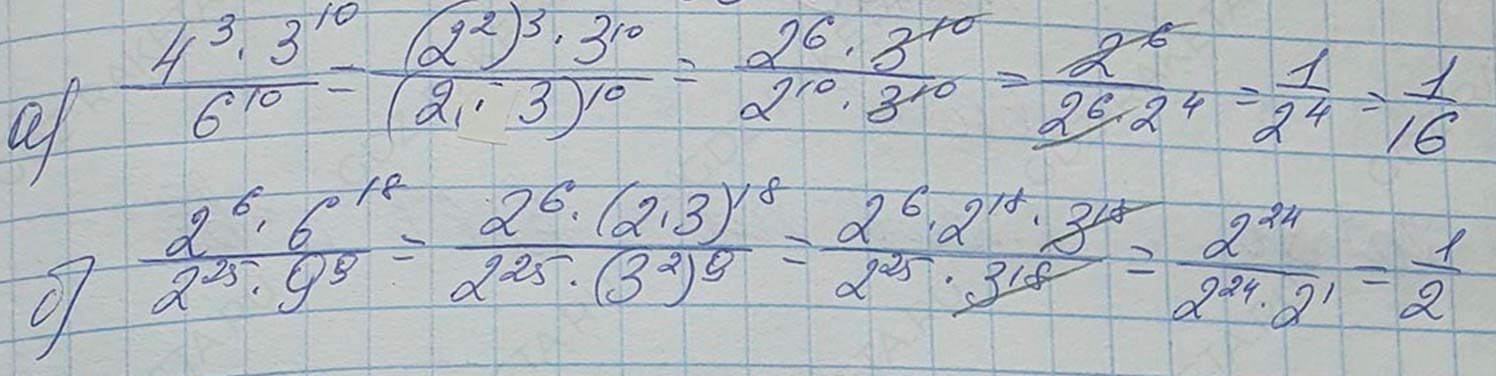 а) \frac{4^3 \cdot 3^{10}}{6^{10}} = \frac{(2^2)^3 \cdot 3^{10}}{(2 \cdot 3)^{10}} = \frac{2^6 \cdot 3^{10}}{2^{10} \cdot 3^{10}} = \frac{2^6}{2^6 \cdot 2^4} = \frac{1}{2^4} = \frac{1}{16}
б) \frac{2^6 \cdot 6^{18}}{2^{25} \cdot 9^9} = \frac{2^6 \cdot (2 \cdot 3)^{18}}{2^{25} \cdot (3^2)^9} = \frac{2^6 \cdot 2^{18} \cdot 3^{18}}{2^{25} \cdot 3^{18}} = \frac{2^{24}}{2^{24} \cdot 2^1} = \frac{1}{2}